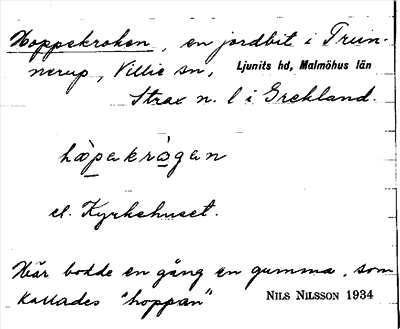 Hoppekroken, en jordbit i Trun-
nerup, Villie sn, Ljunits hd, Malmöhus län
Strax n. l i Grekland.
hòpakrògan
el. Kyrkehuset.
Här bodde en gång en gumma, som
kallades "hoppan" NILS NILSSON 1934